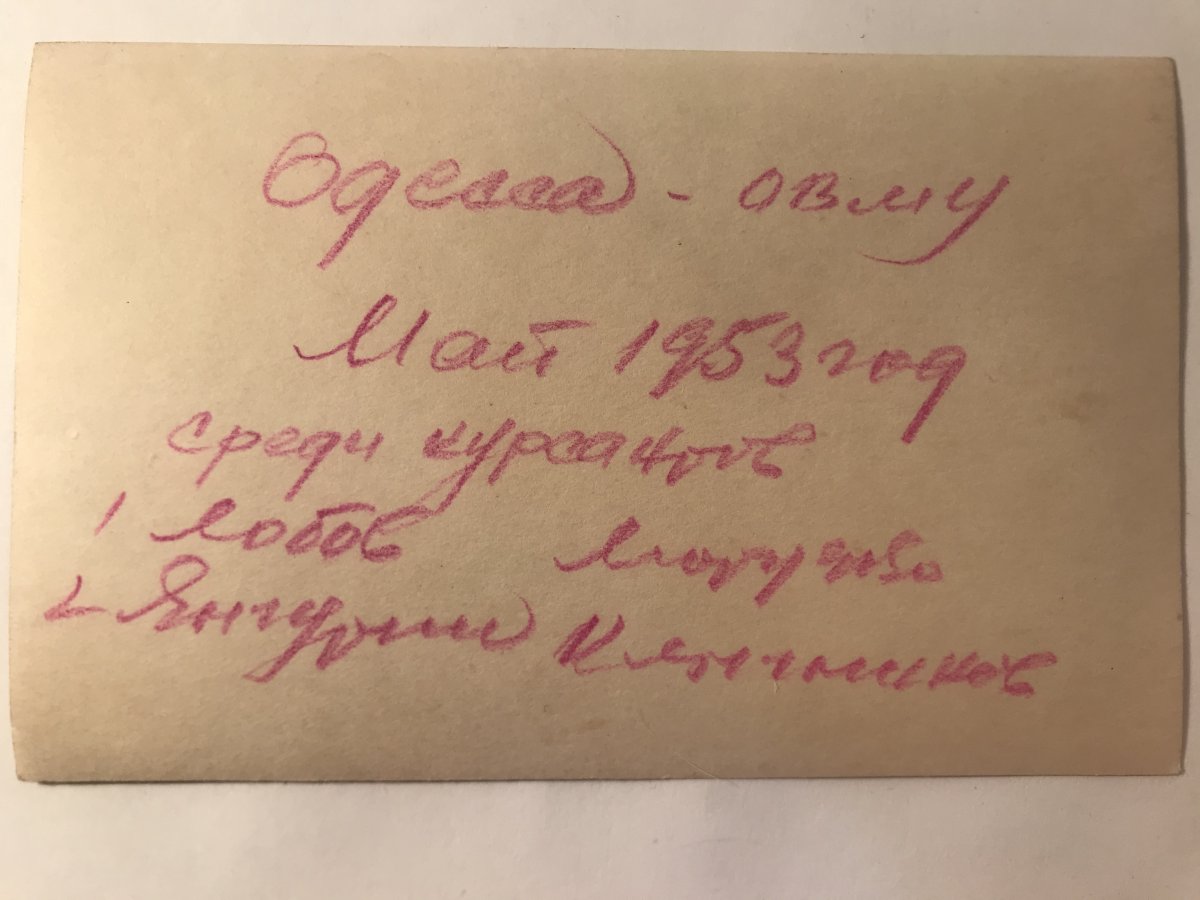 Одесса - ОВМУ
Май 1953 год
среди курсантов
1 Лобов
2 Янгурин Ключников